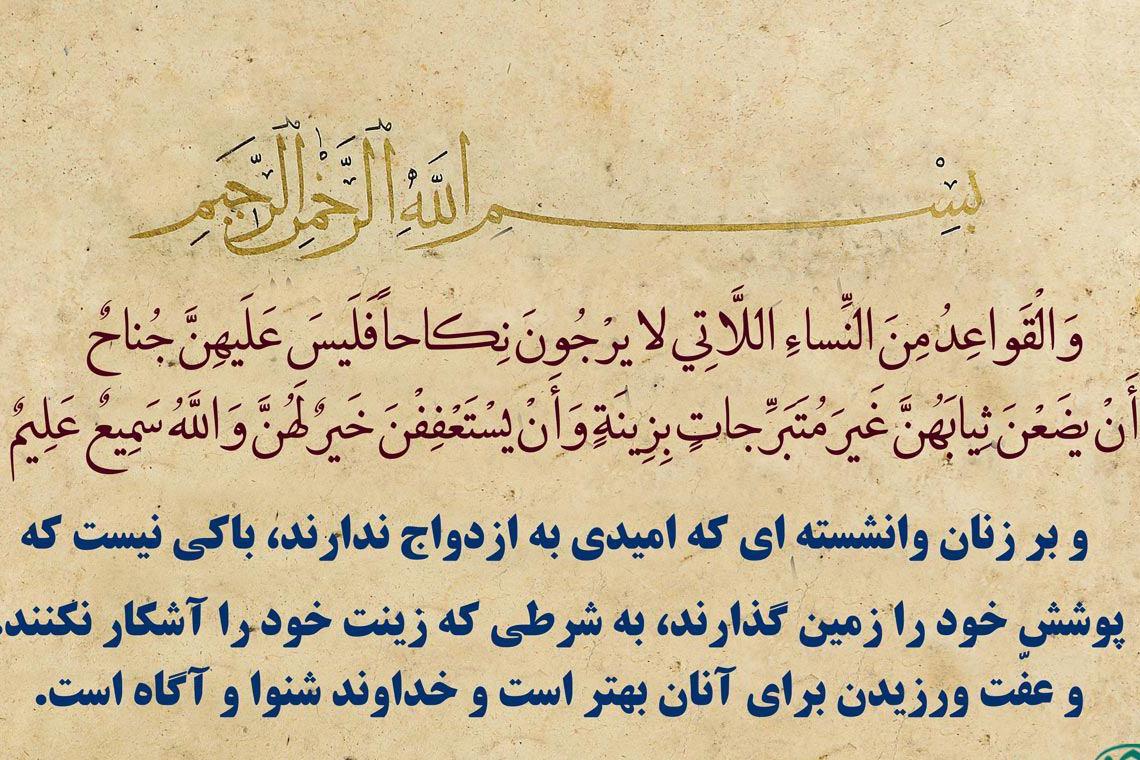 بِسْمِ اللَّهِ الرَّحْمٰنِ الرَّحِيمِ
وَالْقَواعِدُ مِنَ النِّساءِ اللَّاتِي لا يَرْجُونَ نِكاحاً فَلَيسَ عَلَيهِنَّ جُناحٌ
أَنْ يَضَعْنَ ثِيابَهُنَّ غَيرَ مُتَبَرِّجاتٍ بِزِينَةٍ وَأَنْ يَسْتَعْفِفْنَ خَيرٌ لَهُنَّ وَاللَّهُ سَمِيعٌ عَلِيمٌ
و بر زنان وانشسته ای که امیدی به ازدواج ندارند، باکی نیست که
پوشش خود را زمین گذارند، به شرطی که زینت خود را آشکار نکنند.
و عفّت ورزیدن برای آنان بهتر است و خداوند شنوا و آگاه است.